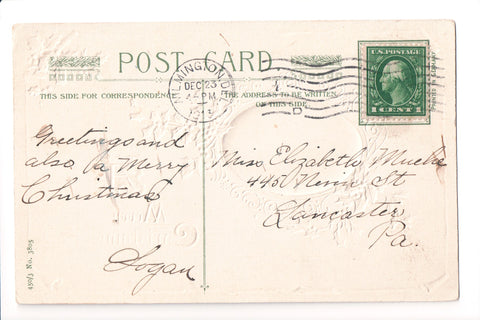 POST CARD
THIS SIDE FOR CORRESPONDENCE
THE ADDRESS TO BE WRITTEN
ON THIS SIDE
WILMINGTON, DEL.
DEC 23
PM
U.S. POSTAGE
1 CENT 1
Greetings and
also a Merry
Christmas
Logan
Miss Elizabeth
445 Nevin St
Lancaster
Pa.
Merry
450/3 No. 3805